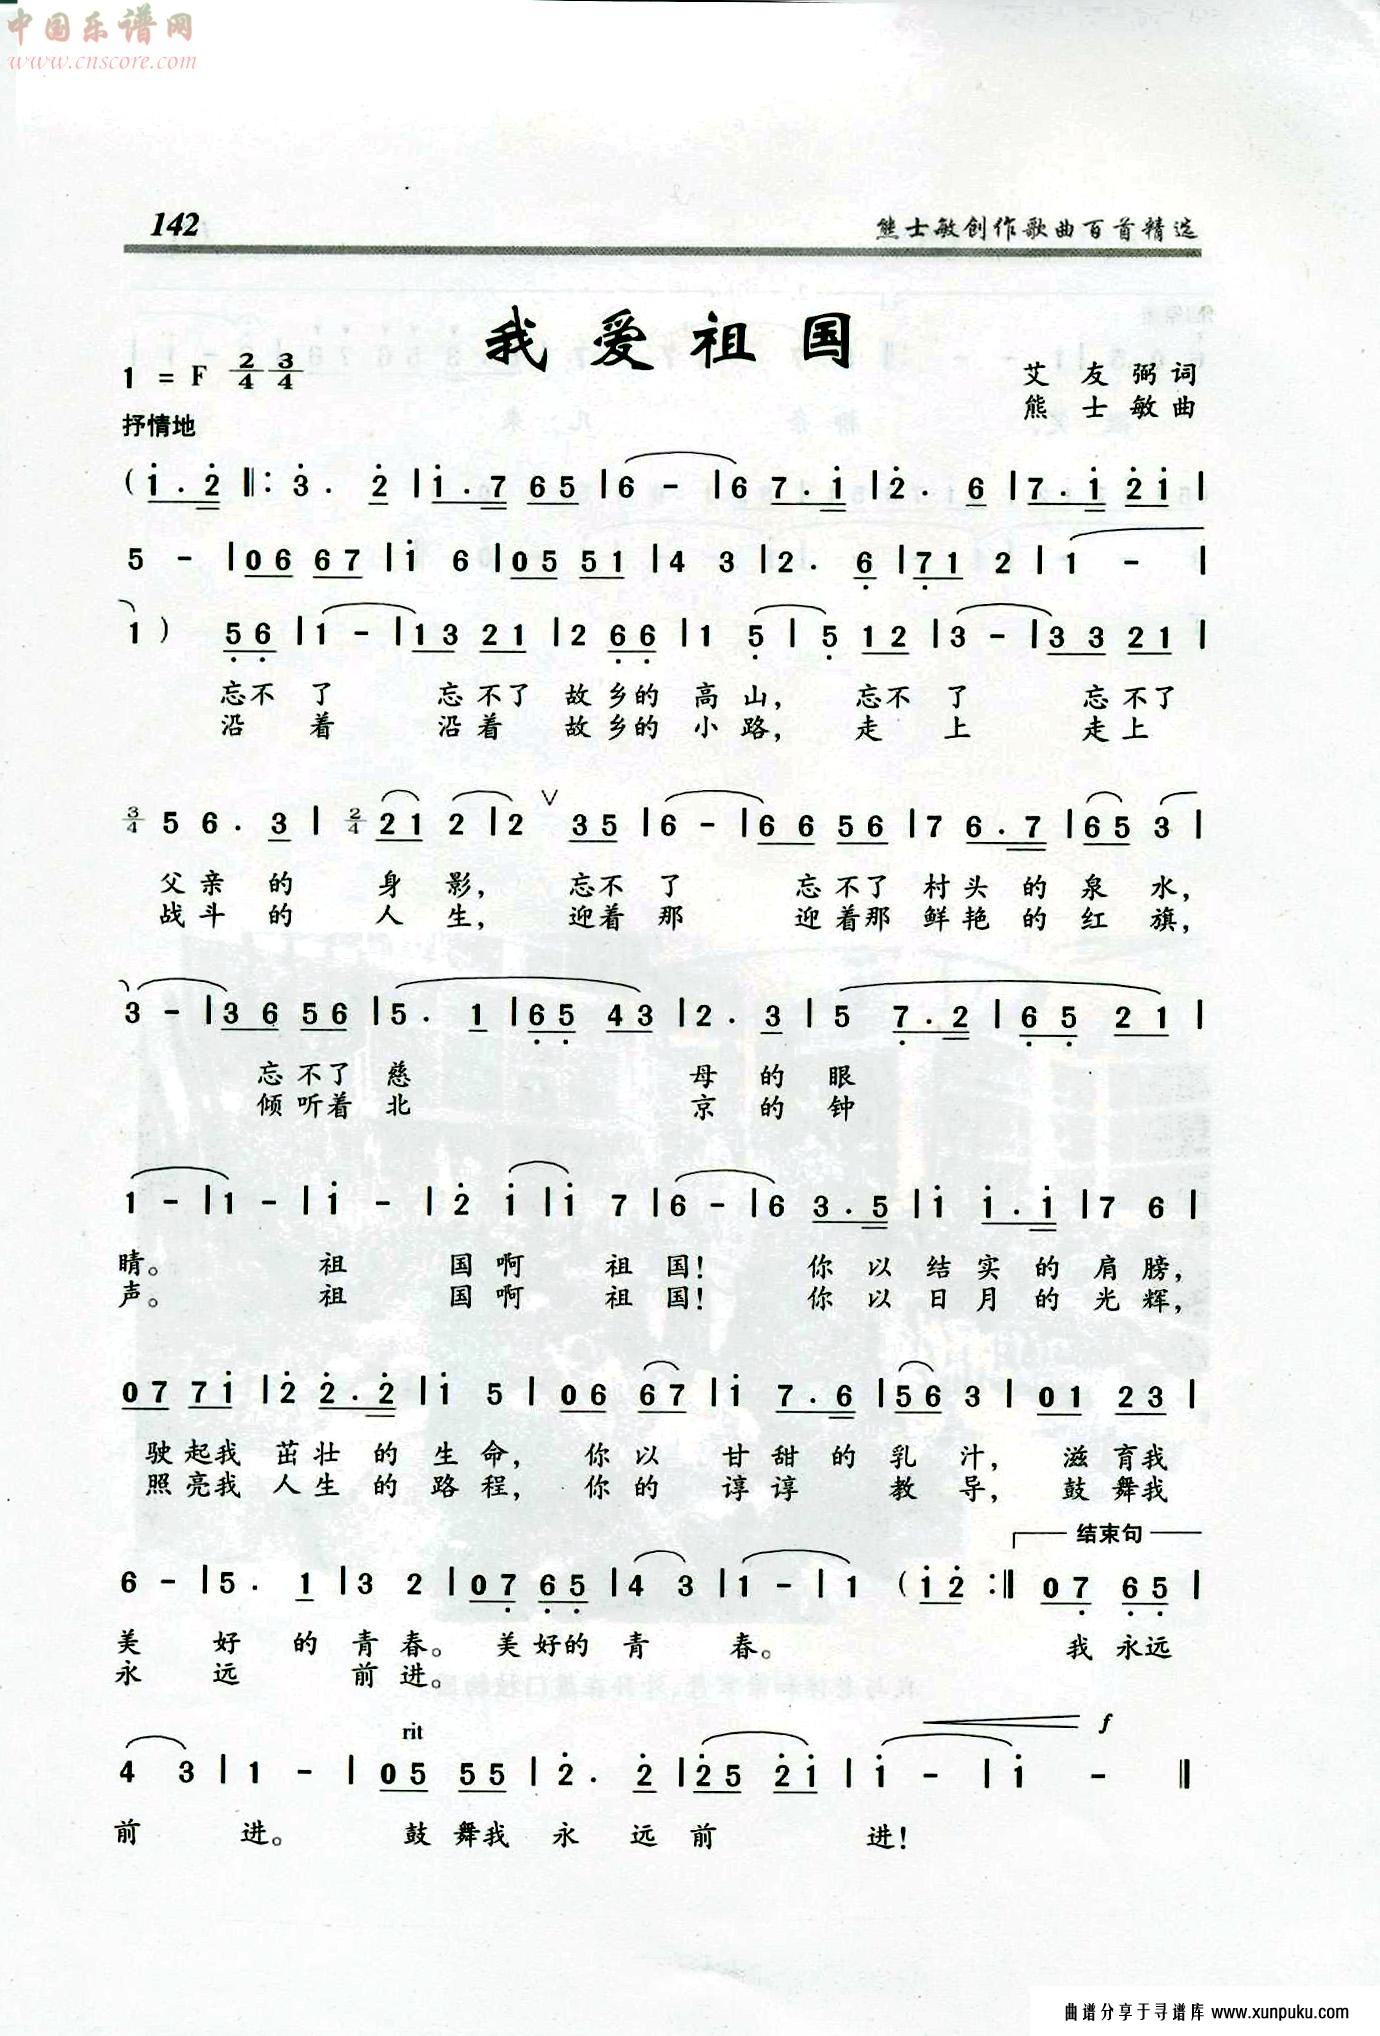 中国乐谱网
www.cnscore.com
142
熊士敏创作歌曲百首精选
我爱祖国
1 = F 2/4 3/4
艾友弥词
熊士敏曲
抒情地
(i . 2 ‖: 3 . 2 | i . 7 6 5 | 6 - | 6 7 . i | 2 . 6 | 7 . i 2 i |
5 - | 0 6 6 7 | i 6 | 0 5 5 1 | 4 3 | 2 . 6 | 7 1 2 | 1 - |
1 ) 5 6 | 1 - | 1 3 2 1 | 2 6 6 | 1 5 | 5 1 2 | 3 - | 3 3 2 1 |
忘不了 忘不了故乡的高山, 忘不了 忘不了
沿着 沿着 故乡的小路, 走上 走上
3/4 5 6 . 3 | 2/4 2 1 2 | 2 ∨ 3 5 | 6 - | 6 6 5 6 | 7 6 . 7 | 6 5 3 |
父亲的身影, 忘不了 忘不了村头的泉水,
战斗的人生, 迎着那 迎着那鲜艳的红旗,
3 - | 3 6 5 6 | 5 . 1 | 6 5 4 3 | 2 . 3 | 5 7 . 2 | 6 5 2 1 |
忘不了慈 母的眼
倾听着北 京的钟
1 - | 1 - | i - | 2 i | i 7 | 6 - | 6 3 . 5 | i i . i | 7 6 |
睛。 祖 国啊 祖国! 你以结实的肩膀,
声。 祖 国啊 祖国! 你以日月的光辉,
0 7 7 i | 2 2 . 2 | i 5 | 0 6 6 7 | i 7 . 6 | 5 6 3 | 0 1 2 3 |
驶起我茁壮的生命, 你以甘甜的乳汁, 滋育我
照亮我人生的路程, 你的谆谆教导, 鼓舞我
结束句
6 - | 5 . 1 | 3 2 | 0 7 6 5 | 4 3 | 1 - | 1 (i 2 :‖ 0 7 6 5 |
美好的青春。美好的青春。 我永远
永远前进。
rit
f
4 3 | 1 - | 0 5 5 5 | 2 . 2 | 2 5 2 i | i - | i - ‖
前进。 鼓舞我永远前 进!
曲谱分享于寻谱库 www.xunpuku.com